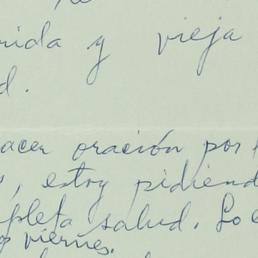 rida y vieja
d.
acer oración por
, estoy pidiend
pleta salud. Lo
s viernes.